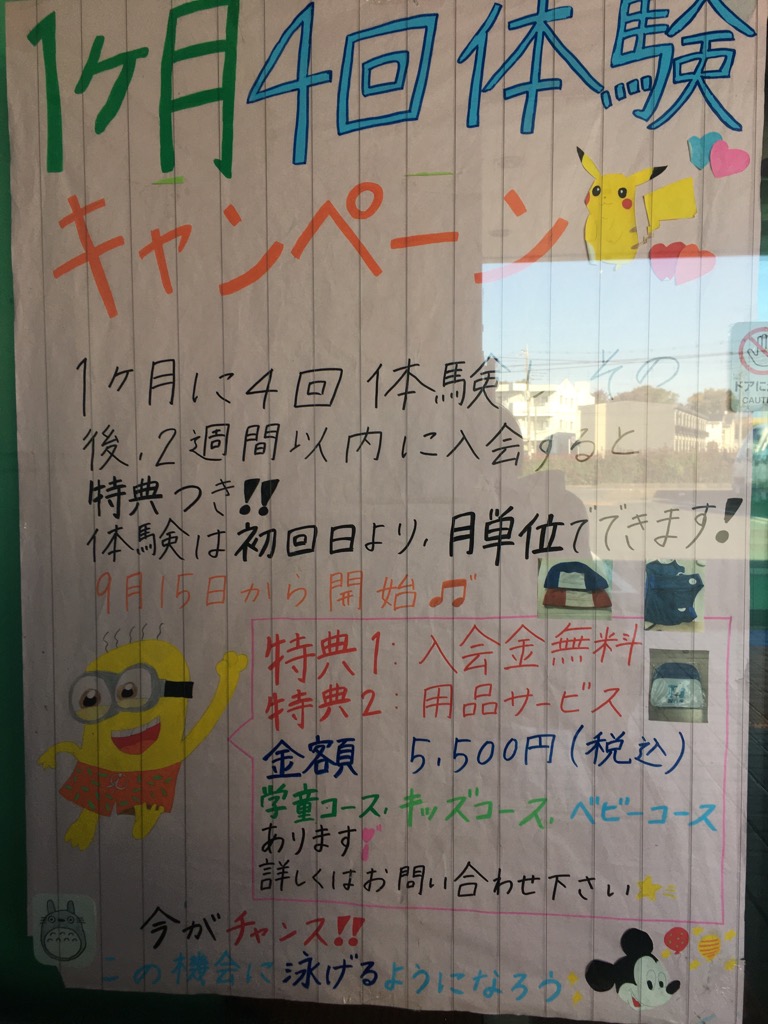 1ヶ月4回体験
キャンペーン
1ヶ月に4回体験、その
後、2週間以内に入会すると
特典つき!!
体験は初回日より、月単位でできます!
9月15日から開始♫
特典1:入会金無料
特典2:用品サービス
金額 5,500円(税込)
学童コース、キッズコース、ベビーコース
あります
詳しくはお問い合わせ下さい
今がチャンス!!
この機会に泳げるようになろう
ドアに
CAUT